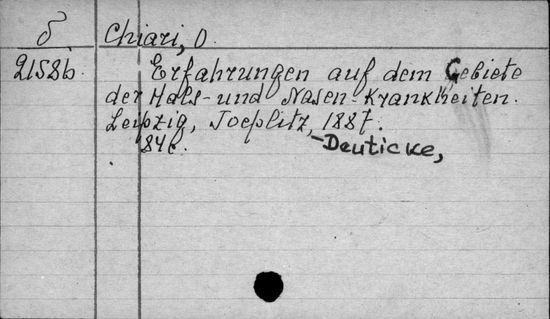 δ Chiari, O.
2158b. Erfahrungen auf dem Gebiete
der Hals- und Nasen-Krankheiten.
Leipzig, Toeplitz, 1887.
84c. -Deuticke,